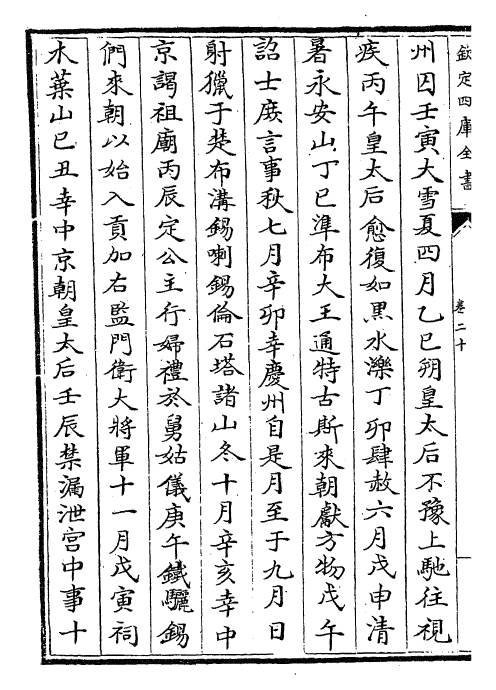 欽定四庫全書
卷二十
州囚壬寅大雪夏四月乙巳朔皇太后不豫上馳往視
疾丙午皇太后愈復如黒水濼丁卯肆赦六月戊申清
暑永安山丁巳準布大王通特古斯來朝獻方物戊午
詔士庶言事秋七月辛卯幸慶州自是月至于九月日
射獵于楚布溝錫喇錫倫石塔諸山冬十月辛亥幸中
京謁祖廟丙辰定公主行婦禮於舅姑儀庚午鐵驪錫
們來朝以始入貢加右監門衛大將軍十一月戊寅祠
木葉山已丑幸中京朝皇太后壬辰禁漏泄宫中事十